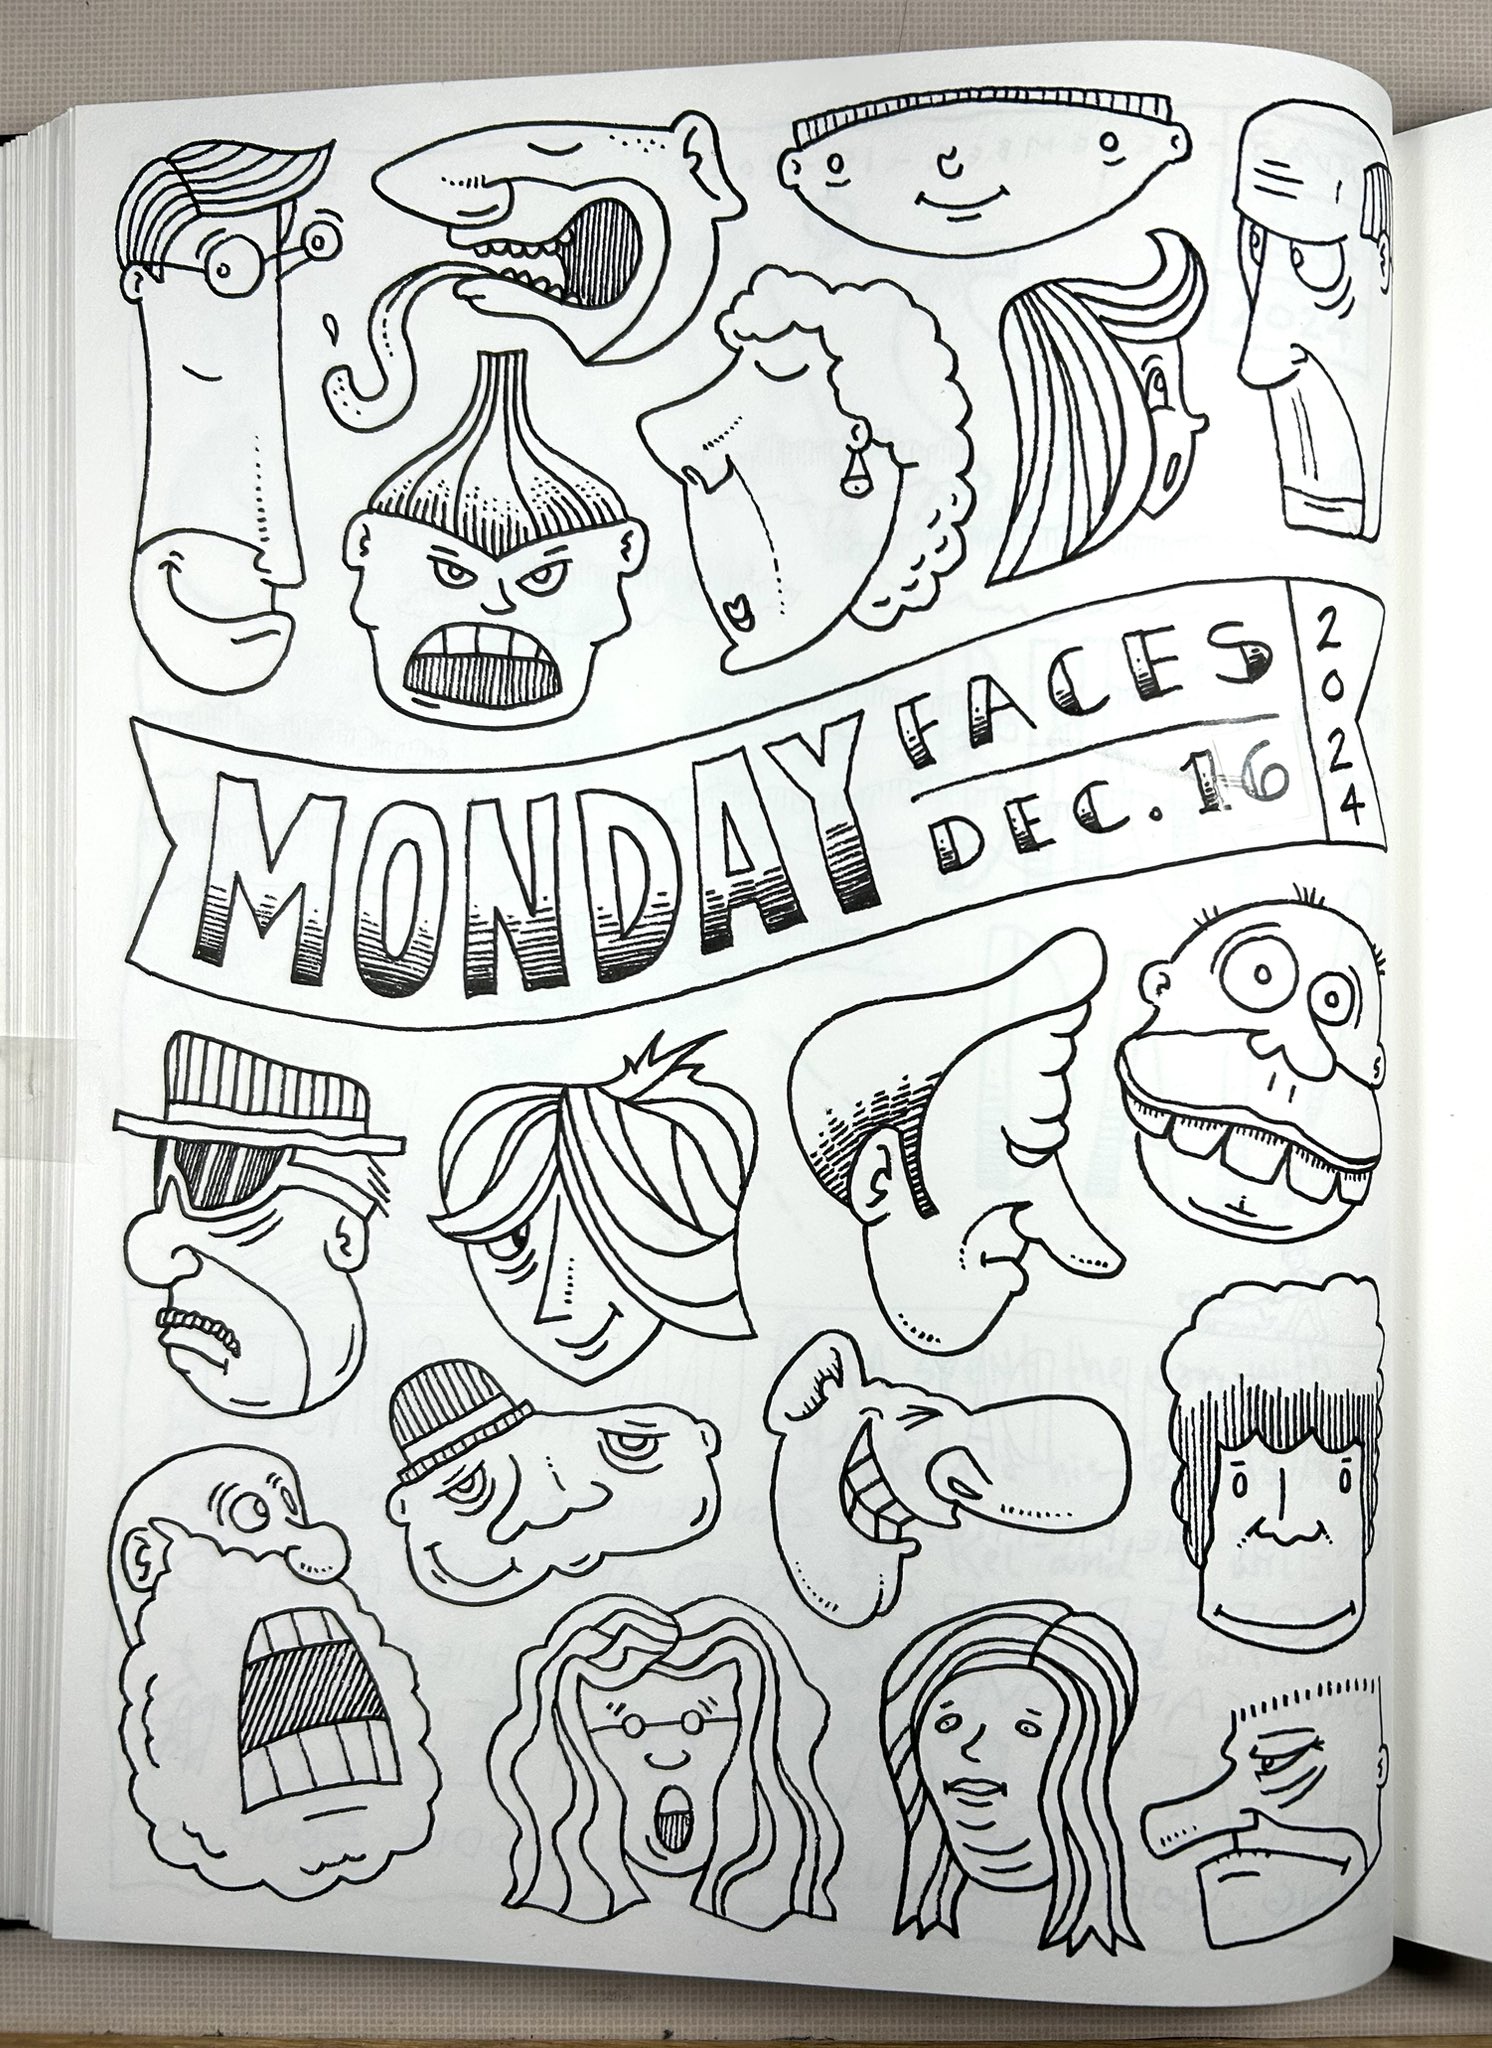 MONDAY
FACES
DEC. 16
2024